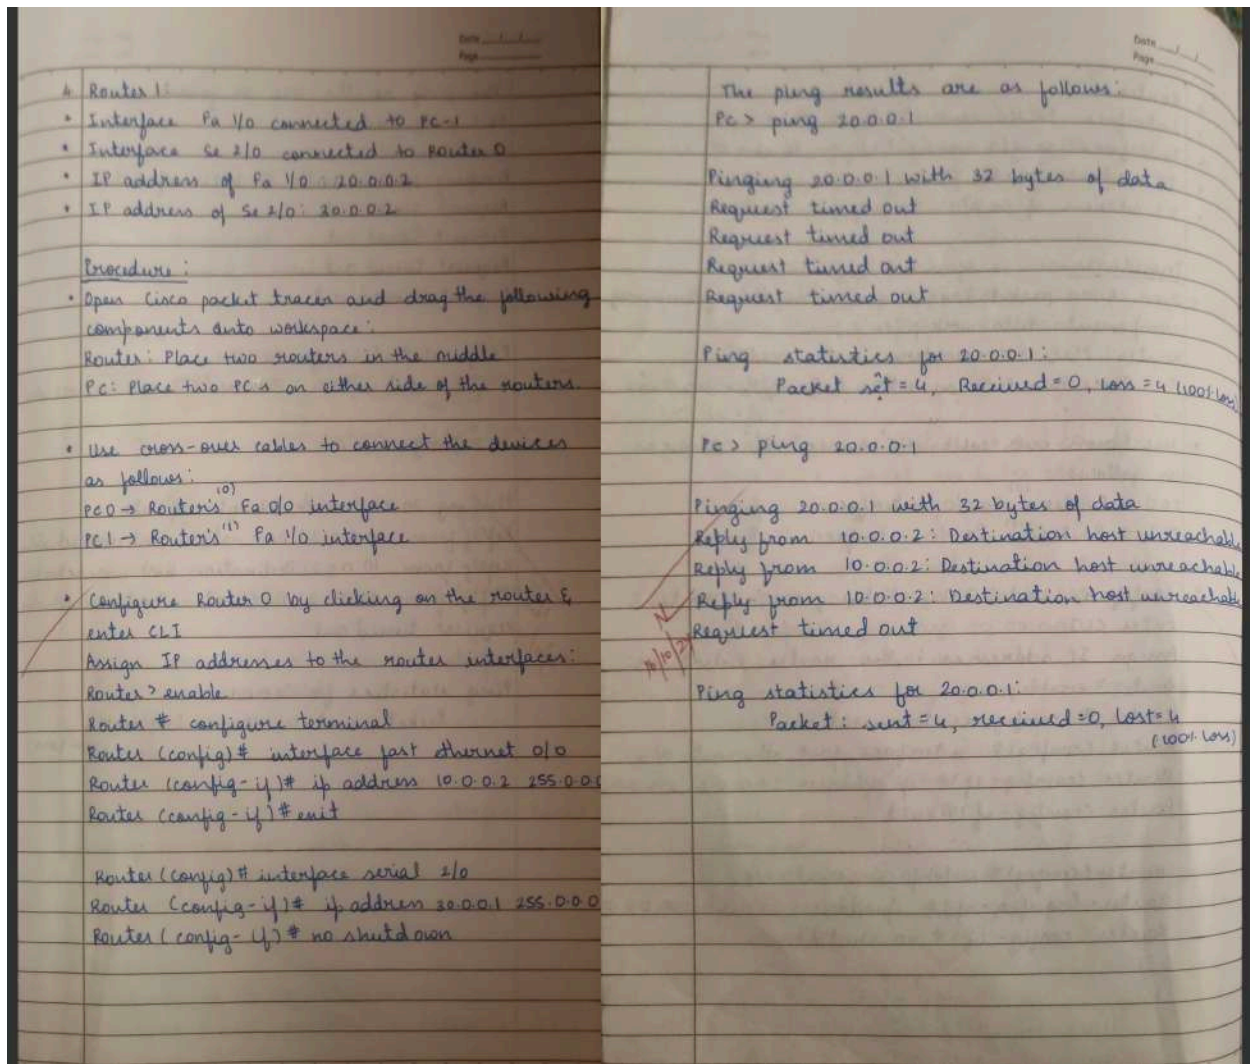 Date
Page
4. Router 1:
• Interface Fa 1/0 connected to PC-1
• Interface Se 2/0 connected to Router 0
• IP address of Fa 1/0: 20.0.0.2
• IP address of Se 2/0: 30.0.0.2
Procedure:
• Open Cisco packet tracer and drag the following
components onto workspace:
Router: Place two routers in the middle
PC: Place two PC's on either side of the routers.
• Use cross-over cables to connect the devices
as follows:
PC0 → Router's (0) Fa 0/0 interface
PC1 → Router's (1) Fa 1/0 interface
• Configure Router 0 by clicking on the router &
enter CLI
Assign IP addresses to the router interfaces:
Router > enable
Router # configure terminal
Router (config)# interface fast ethernet 0/0
Router (config-if)# ip address 10.0.0.2 255.0.0.0
Router (config-if)# exit
Router (config)# interface serial 2/0
Router (config-if)# ip address 30.0.0.1 255.0.0.0
Router (config-if)# no shutdown
Date
Page
The ping results are as follows:
PC > ping 20.0.0.1
Pinging 20.0.0.1 with 32 bytes of data
Request timed out
Request timed out
Request timed out
Request timed out
Ping statistics for 20.0.0.1:
Packet set = 4, Received = 0, Loss = 4 (100% loss)
PC > ping 20.0.0.1
Pinging 20.0.0.1 with 32 bytes of data
Reply from 10.0.0.2: Destination host unreachable
Reply from 10.0.0.2: Destination host unreachable
Reply from 10.0.0.2: Destination host unreachable
Request timed out
Ping statistics for 20.0.0.1:
Packet: sent = 4, received = 0, Lost = 4
(100% Loss)